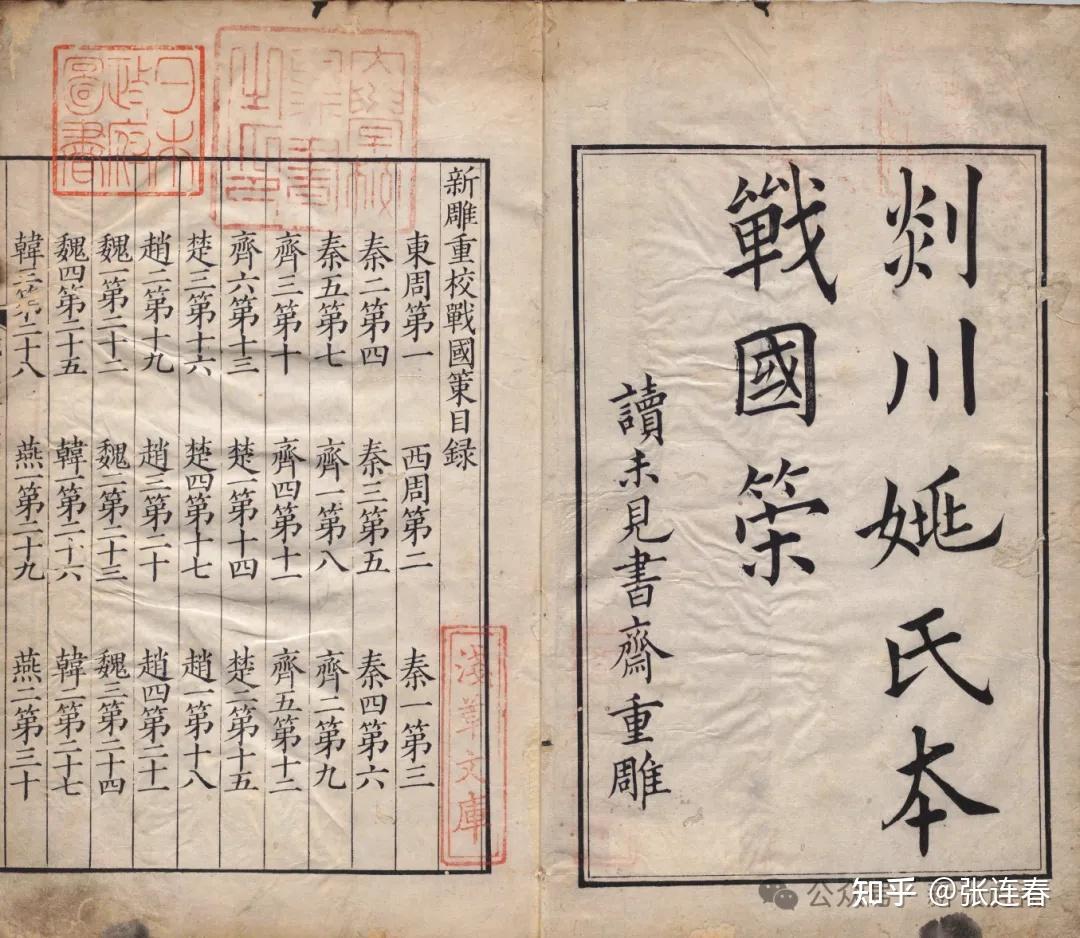 剡川姚氏本
戰國策
讀未見書齋重雕
新雕重校戰國策目録
東周第一 西周第二 秦一第三
秦二第四 秦三第五 秦四第六
秦五第七 齊一第八 齊二第九
齊三第十 齊四第十一 齊五第十二
齊六第十三 楚一第十四 楚二第十五
楚三第十六 楚四第十七 趙一第十八
趙二第十九 趙三第二十 趙四第二十一
魏一第二十二 魏二第二十三 魏三第二十四
魏四第二十五 韓一第二十六 韓二第二十七
韓三第二十八 燕一第二十九 燕二第三十
大學校圖書之印
日本政府圖書
淺草文庫
知乎 @张连春